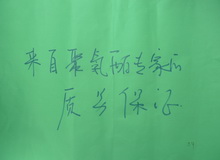 来自聚氨酯专家的
质量保证